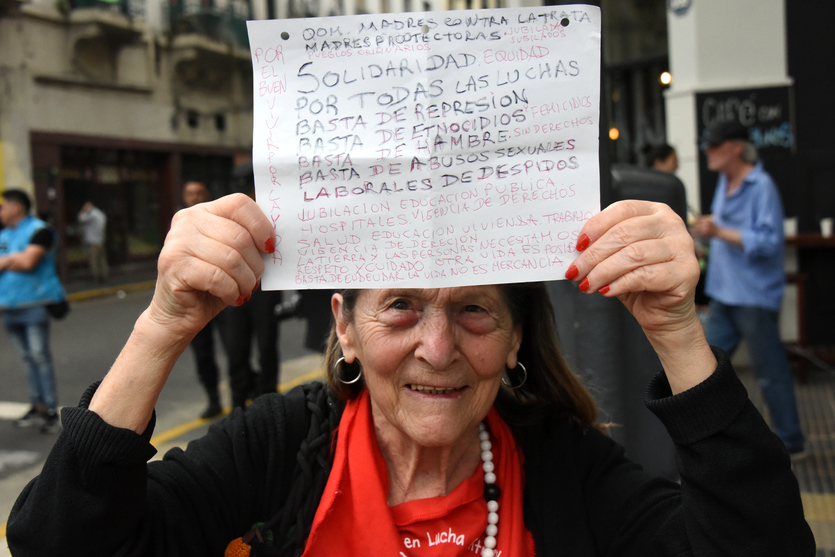 OOM. MADRES CONTRA LA TRATA
MADRES PROTECTORAS. JUBILADAS
PUEBLOS ORIGINARIOS JUBILADOS
SOLIDARIDAD. EQUIDAD
POR TODAS LAS LUCHAS
BASTA DE REPRESIÓN
BASTA DE ETNOCIDIOS FEMICIDIOS
BASTA DE HAMBRE. SIN DERECHOS
BASTA DE ABUSOS SEXUALES
LABORALES DE DESPIDOS
JUBILACION EDUCACION PUBLICA
HOSPITALES. VIGENCIA DE DERECHOS
SALUD EDUCACION VIVIENDA TRABAJO
LA TIERRA Y LAS PERSONAS NECESITAMOS
OTRA VIDA ES POSIBLE
RESPETO Y CUIDADO
BASTA DE LA VIDA NO ES MERCANCIA
POR
EL
BUEN
CAFÉ
en Lucha